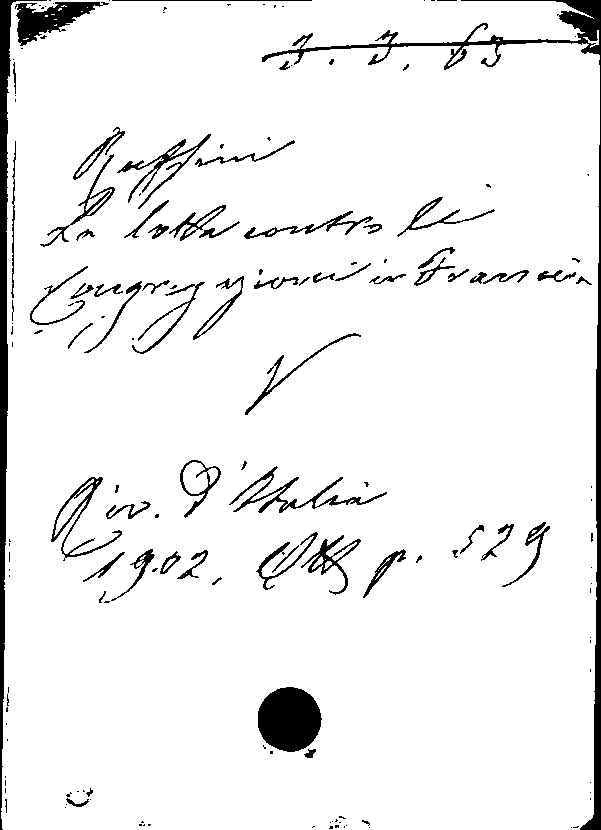 3. 3. 63
Ruffini
La lotta contro le
Congregazioni in Francia
V
Riv. d'Italia
1902, Ott p. 529